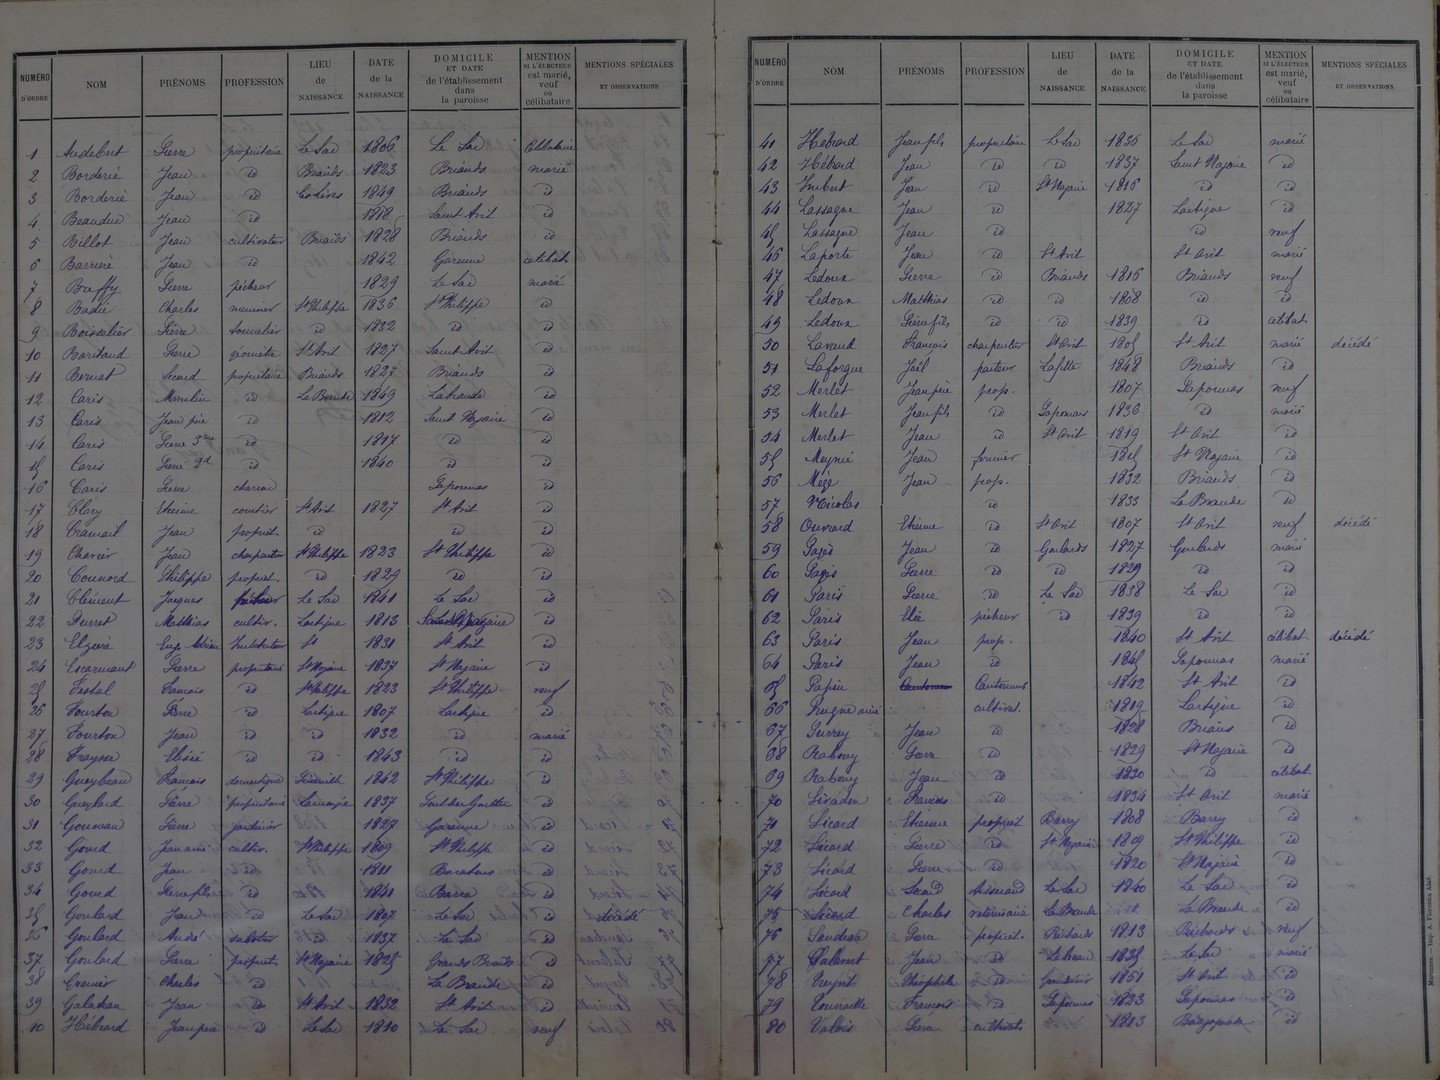 NUMÉRO D'ORDRE NOM PRÉNOMS PROFESSION LIEU de NAISSANCE DATE de la NAISSANCE DOMICILE ET DATE de l'établissement dans la paroisse MENTION SI L'ÉLECTEUR est marié, veuf ou célibataire MENTIONS SPÉCIALES ET OBSERVATIONS
1 Audebert Pierre propriétaire Le Sac 1806 Le Sac Célibataire
2 Borderie Jean id Briands 1823 Briands marié
3 Borderie Jean id 1849 Briands id
4 Beaudu Jean id 1818 Saint Avit id
5 Billot Jean cultivateur Briands 1828 Briands id
6 Barrière Jean id 1842 Garenne célibat.
7 Buffy Pierre pêcheur 1829 Le Sac marié
8 Badie Charles meunier St Philippe 1836 St Philippe id
9 Boisselier Pierre tonnelier id 1832 id id
10 Baritaud Pierre géomètre St Avit 1827 Saint Avit id
11 Bernat Second propriétaire Briands 1827 Briands id
12 Caris Marcelin id La Braude 1849 Labraude id
13 Caris Jean père id 1812 Saint Nazaire id
14 Caris Pierre 3me id 1817 id id
15 Caris Pierre 2d id 1840 id id
16 Caris Pierre Gaponnas id
17 Clary Etienne courtier St Avit 1827 St Avit id
18 Cramail Jean propriét. id id id
19 Charier Jean charpentier St Philippe 1823 St Philippe id
20 Counord Philippe propriet. id 1829 id id
21 Clément Jacques pêcheur Le Sac 1841 Le Sac id
22 Durret Matthias cultiv. Lartigue 1813 Saint Nazaire id
23 Elzière Eug. Adrien Instituteur St 1831 St Avit id
24 Escarmant Pierre propriétaire St Nazaire 1837 St Nazaire id
25 Festal François id St Philippe 1823 St Philippe veuf
26 Fourton Pierre id Lartigue 1807 Lartigue id
27 Fourton Jean id id 1832 id marié
28 Frayne Elisée id id 1843 id id
29 Gueybeau François domestique 1842 St Philippe id
30 Gueylard Pierre propriétaire 1837 id
31 Gouneau Pierre jardinier 1827 Garenne id
32 Gourd Jean ainé cultiv. St Philippe 1809 St Philippe id
33 Gourd Jean id 1811 id
34 Gourd Pierre fils id 1841 Barra id
35 Goulard Jean id Le Sac 1807 Le Sac id décédé
36 Goulard André sabotier id 1837 Le Sac id
37 Goulard Pierre propriét. St Nazaire 1825 Grands Briands id
38 Grenier Charles id La Braude id
39 Galatkau Jean id St Avit 1832 St Avit id
40 Hébrard Jean père id Le Sac 1810 Le Sac veuf
NUMÉRO D'ORDRE NOM PRÉNOMS PROFESSION LIEU de NAISSANCE DATE de la NAISSANCE DOMICILE ET DATE de l'établissement dans la paroisse MENTION SI L'ÉLECTEUR est marié, veuf ou célibataire MENTIONS SPÉCIALES ET OBSERVATIONS
41 Hébrard Jean fils propriétaire Le Sac 1836 Le Sac marié
42 Hébrard Jean id id 1837 Saint Nazaire id
43 Imbert Jean id St Nazaire 1816 id id
44 Lassagne Jean id 1827 Lartigue id
45 Lassagne Jean id id veuf
46 Laporte Jean id St Avit St Avit marié
47 Ledoux Pierre id Briands 1816 Briands veuf
48 Ledoux Matthias id id 1808 id id
49 Ledoux Pierre fils id id 1839 id célibat.
50 Lavaud François charpentier St Avit 1805 St Avit marié décédé
51 Laforgue Joël pasteur Lafitte 1848 Briands id
52 Merlet Jean père prop. 1807 Gaponnas veuf
53 Merlet Jean fils id Gaponnas 1836 id marié
54 Merlet Jean id St Avit 1819 St Avit id
55 Meynié Jean fournier 1815 St Nazaire id
56 Mège Jean prop. 1832 Briands id
57 Nicolas id 1833 La Braude id
58 Ouvrard Etienne id St Avit 1807 St Avit veuf décédé
59 Pagès Jean id Goulards 1827 Goulards marié
60 Pagès Pierre id id 1829 id id
61 Paris Pierre id Le Sac 1838 Le Sac id
62 Paris Elie pêcheur id 1839 id id
63 Paris Jean prop. 1840 St Avit célibat. décédé
64 Paris Jean id 1845 Gaponnas marié
65 Papin Cantonnier 1842 St Avit id
66 ainé cultivat. 1819 Lartigue id
67 Jean id 1828 Briands id
68 Rabouy Pierre id 1829 St Nazaire id
69 Rabouy Jean id 1820 id célibat.
70 François id 1834 St Avit marié
71 Sicard Etienne propriét Barry 1808 Barry id
72 Sicard Pierre id St Nazaire 1809 St Philippe id
73 Sicard Pierre id 1820 St Nazaire id
74 Sicard Second Le Sac 1840 Le Sac id
75 Sicard Charles vétérinaire La Braude La Braude id
76 Sandeau Pierre propriét. Richards 1813 Richards veuf
77 Jean id 1825 Le Sac marié
78 Théophile id 1851 St Avit id
79 François id Gaponnas 1823 Gaponnas id
80 Valois Pierre cultivat. 1813 id
Marennes. — Imp. A. Florentin Aîné